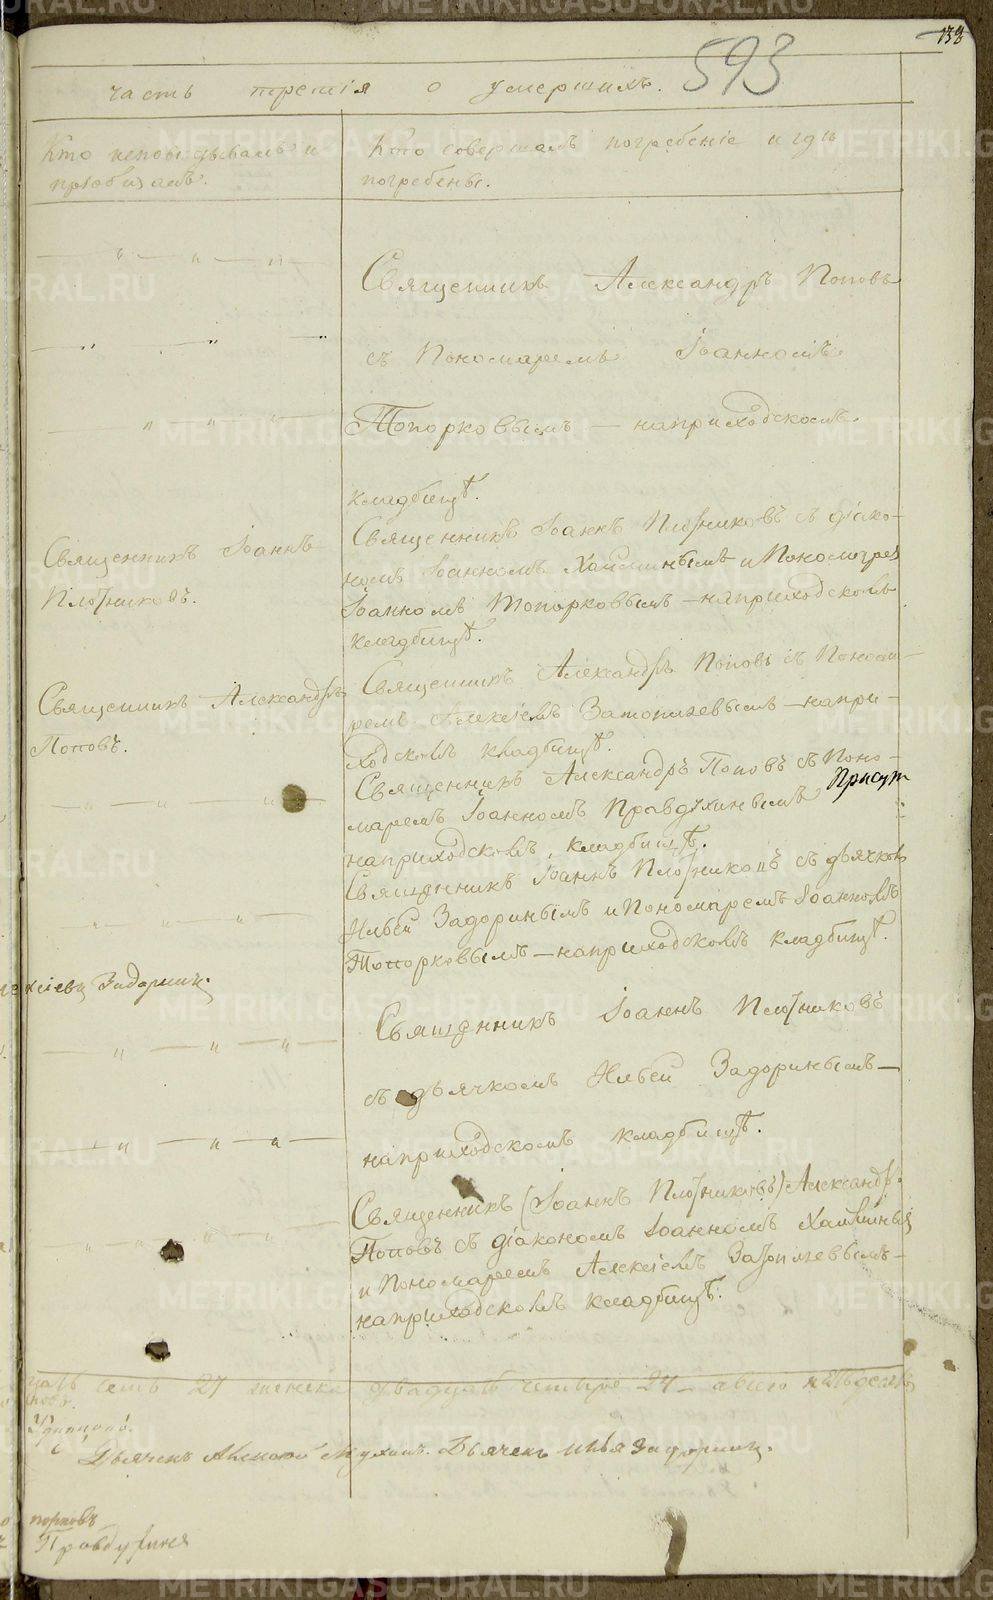 593
часть третія о умершихъ.
Кто исповѣдывалъ и
пріобщалъ.
Кто совершалъ погребеніе и гдѣ
погребены.
Священникъ Александръ Поповъ
съ Пономаремъ Іоанномъ
Топорковымъ — наприходскомъ
кладбищѣ.
Священникъ Іоаннъ
Плотниковъ.
Священникъ Іоаннъ Плотниковъ съ діако-
номъ Іоанномъ Хамминымъ и Пономарем
Іоанномъ Топорковымъ — наприходскомъ
кладбищѣ.
Священникъ Александръ
Поповъ.
Священникъ Александръ Поповъ съ Понома-
ремъ Алексіемъ Затопляевымъ — напри-
ходскомъ кладбищѣ.
Священникъ Александръ Поповъ съ Поно-
маремъ Іоанномъ Правдухинымъ
наприходскомъ кладбищѣ.
Священникъ Іоаннъ Плотниковъ съ дьячком
Ильей Задоринымъ и Пономаремъ Іоанномъ
Топорковымъ — наприходскомъ кладбищѣ.
Задоринъ.
Священникъ Іоаннъ Плотниковъ
съ дьячкомъ Ильей Задоринымъ —
наприходскомъ кладбищѣ.
Священникъ (Іоаннъ Плотниковъ) Александръ
Поповъ съ діакономъ Іоанномъ Хамминым
и Пономаремъ Алексіемъ Затопляевымъ —
наприходскомъ кладбищѣ.
цать семь 27 женска двадцать четыре 24 — обоего пятьдесять
Дьячекъ Алексей Мухинъ. Дьячекъ Илья Задоринъ.
порковъ
Правдухинъ
METRIKI.GASO-URAL.RU